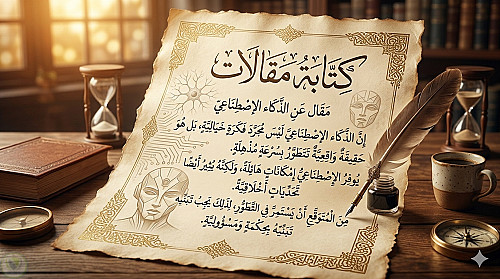 كِتَابَةُ مَقَالَات
مَقَال عَنِ الذَّكَاءِ الإِصْطِنَاعِيِّ
إِنَّ الذَّكَاءَ الإِصْطِنَاعِيَّ لَيْسَ مُجَرَّدَ فِكْرَةٍ خَيَالِيَّةٍ، بَلْ هُوَ
حَقِيقَةٌ وَاقِعِيَّةٌ تَتَطَوَّرُ بِسُرْعَةٍ مُذْهِلَةٍ.
يُوَفِّرُ الإِصْطِنَاعِيُّ إِمْكَانَاتٍ هَائِلَةً، وَلَكِنَّهُ يُثِيرُ أَيْضًا
تَحَدِّيَاتٍ أَخْلَاقِيَّةً.
مِنَ الْمُتَوَقَّعِ أَنْ يَسْتَمِرَّ فِي التَّطَوُّرِ، لِذَلِكَ يَجِبُ تَبَنِّيهِ
تَبَنِّيهُ بِحِكْمَةٍ وَمَسْؤُولِيَّةٍ.